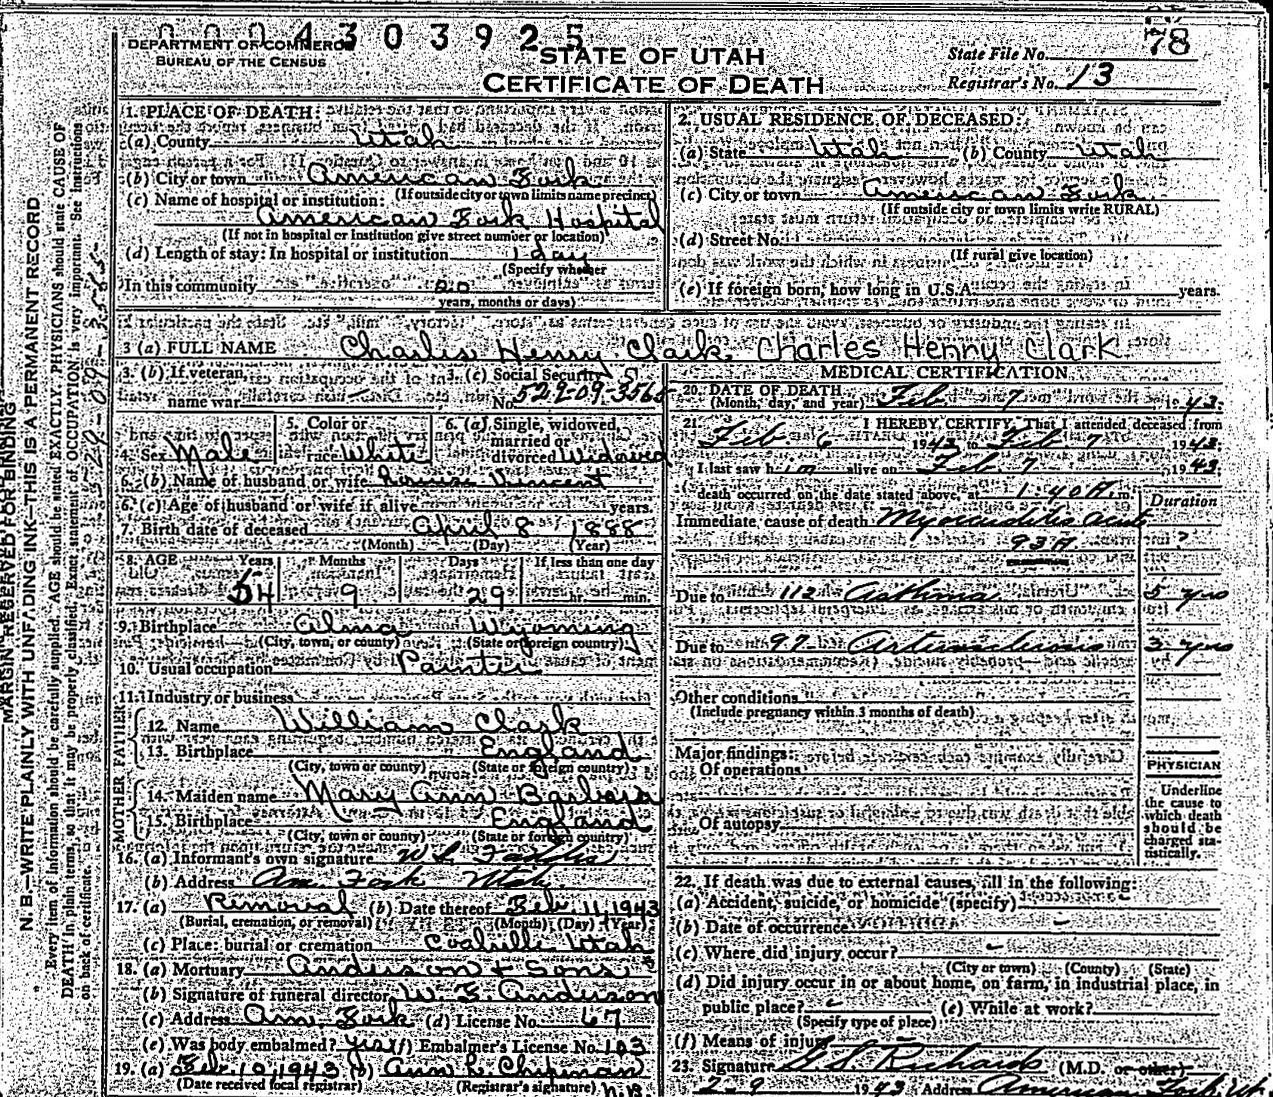 0004303925
78
DEPARTMENT OF COMMERCE
BUREAU OF THE CENSUS
STATE OF UTAH
CERTIFICATE OF DEATH
State File No.
Registrar's No. 13
1. PLACE OF DEATH:
(a) County Utah
(b) City or town American Fork
(If outside city or town limits name precinct)
(c) Name of hospital or institution:
American Fork Hospital
(If not in hospital or institution give street number or location)
(d) Length of stay: In hospital or institution 1 day
(Specify whether
In this community
years, months or days)
2. USUAL RESIDENCE OF DECEASED:
(a) State Utah (b) County Utah
(c) City or town American Fork
(If outside city or town limits write RURAL)
(d) Street No.
(If rural give location)
(e) If foreign born, how long in U.S.A. years.
3 (a) FULL NAME Charles Henry Clark Charles Henry Clark
3. (b) If veteran,
name war
3. (c) Social Security
No. 529-09-3565
4. Sex Male
5. Color or
race White
6. (a) Single, widowed,
married or
divorced Widowed
6. (b) Name of husband or wife Vincent
6. (c) Age of husband or wife if alive years.
7. Birth date of deceased April 8 1888
(Month) (Day) (Year)
8. AGE Years Months Days If less than one day
54 9 29 hr. min.
9. Birthplace Alma Wyoming
(City, town, or county) (State or foreign country)
10. Usual occupation Painter
11. Industry or business
FATHER
12. Name William Clark
13. Birthplace England
(City, town or county) (State or foreign country)
MOTHER
14. Maiden name Mary Ann
15. Birthplace England
(City, town or county) (State or foreign country)
16. (a) Informant's own signature
(b) Address Am. Fork Utah.
17. (a) Removal (b) Date thereof Feb. 11, 1943
(Burial, cremation, or removal) (Month) (Day) (Year)
(c) Place: burial or cremation Coalville Utah
18. (a) Mortuary Anderson & Sons
(b) Signature of funeral director Anderson
(c) Address Am. Fork (d) License No. 67
(e) Was body embalmed? yes (f) Embalmer's License No. 103
19. (a) Feb. 10, 1943 (b) Ann L. Chipman
(Date received local registrar) (Registrar's signature) N.B.
MEDICAL CERTIFICATION
20. DATE OF DEATH
(Month, day, and year) Feb 7 1943
21. I HEREBY CERTIFY, That I attended deceased from
Feb 6 1943 to Feb 7 1943
I last saw him alive on Feb. 7 1943
death occurred on the date stated above, at 1:40 A. m.
Duration
Immediate cause of death Myocarditis acute
93A ?
Due to 112 Asthma 5 yrs
Due to 97 Arteriosclerosis 3 yrs
Other conditions
(Include pregnancy within 3 months of death)
Major findings:
Of operations
Of autopsy
PHYSICIAN
Underline
the cause to
which death
should be
charged sta-
tistically.
22. If death was due to external causes, fill in the following:
(a) Accident, suicide, or homicide (specify)
(b) Date of occurrence
(c) Where did injury occur?
(City or town) (County) (State)
(d) Did injury occur in or about home, on farm, in industrial place, in
public place? (e) While at work?
(Specify type of place)
(f) Means of injury
23. Signature G. S. Richards (M.D. or other)
2-9 1943 Address American Fork, Ut.
MARGIN RESERVED FOR BINDING
N. B.—WRITE PLAINLY WITH UNFADING INK—THIS IS A PERMANENT RECORD
Every item of information should be carefully supplied. AGE should be stated EXACTLY. PHYSICIANS should state CAUSE OF
DEATH in plain terms, so that it may be properly classified. Exact statement of OCCUPATION is very important. See instructions
on back of certificate.